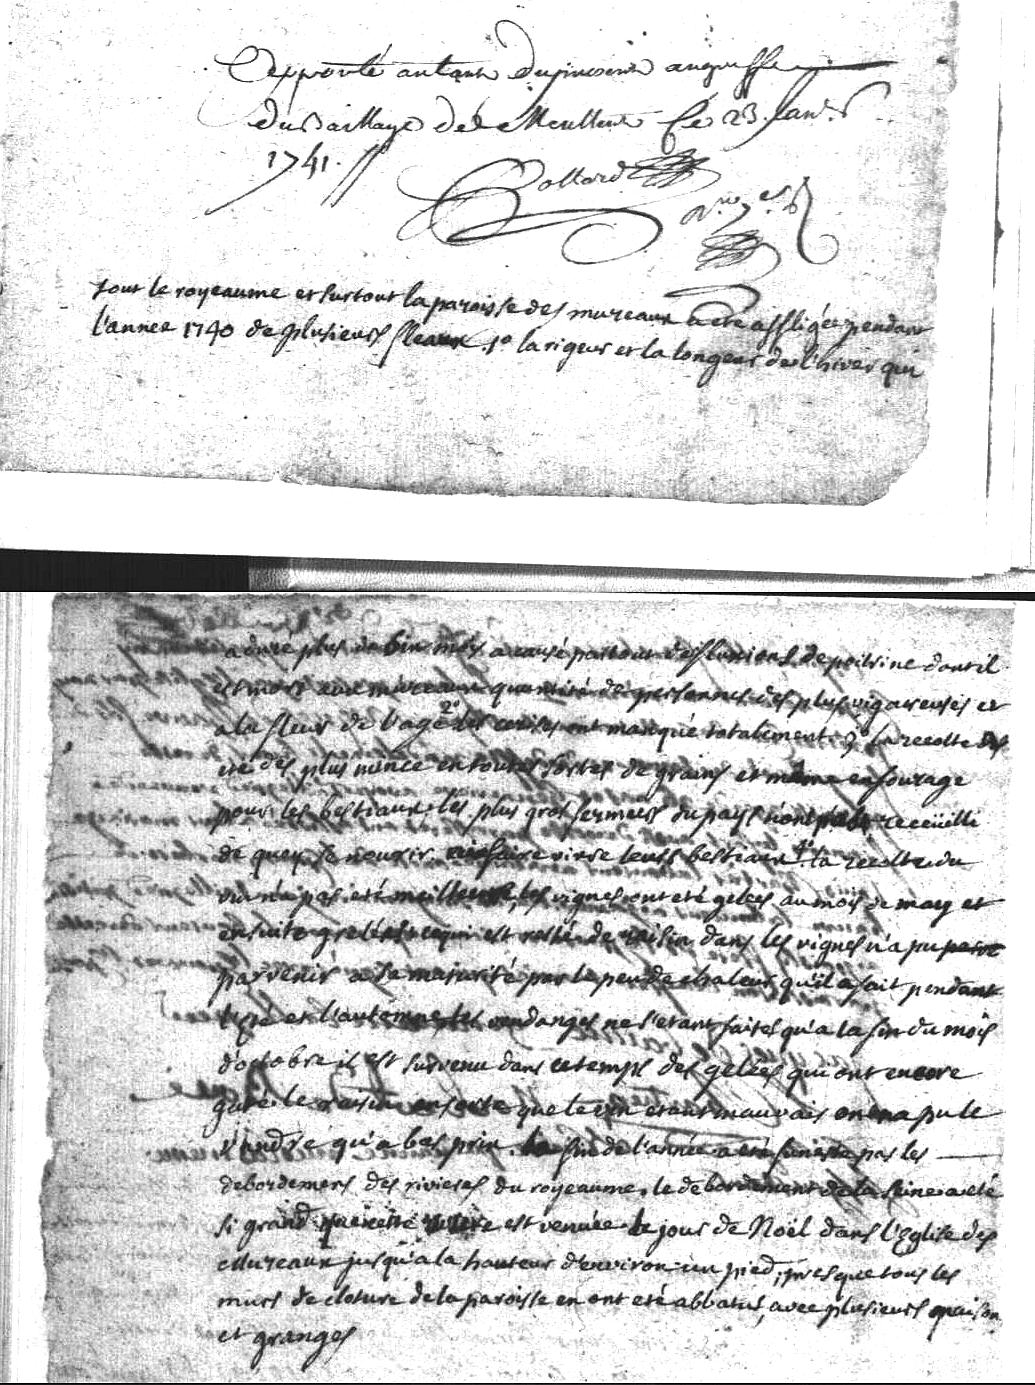 apporté autant du present au greffe
du Bailliage de Meullent le 23. Janv.
1741.
Bottard
tout le royeaume et surtout la paroisse des mureaux a eté affligée pendant
l'annee 1740 de plusieurs fleaux, 1º la rigeur et la longeur de l'hiver qui
a duré plus de six mois a causé partout des fluxions de poitrine dont il
est mort aux mureaux quantité de personnes des plus vigoureuses et
a la fleur de l'age 2º les cerises ont manqué totalement 3º la recolte
eté des plus mince en toutes sortes de grains et même en fourage
pour les bestiaux, les plus gros fermiers du pays n'ont recueilli
de quoy se nourir faire vivre leurs bestiaux 4º la recolte du
vin n'a pas eté meilleure, les vignes ont eté gelées au mois de may et
ensuite grelées ce qui est resté de raisin dans les vignes n'a pu
parvenir a sa maturité par le peu de chaleur qu'il a fait pendant
l'eté et l'automne, les vendanges ne s'etant faites qu'a la fin du mois
d'octobre il est survenu dans ce temps des gelées qui ont encore
gaté le raisin ensorte que le vin etant mauvais on n'en a pu le
vendre qu'a bas prix. la fin de l'année a eté funeste par les
debordemens des rivieres du royeaume, le debordement de la seine a eté
si grand que cette riviere est venuée le jour de Noël dans l'Eglise des
Mureaux jusqu'a la hauteur d'environ un pied, presque tous les
murs de cloture de la paroisse en ont eté abbatus, avec plusieurs maison
et granges